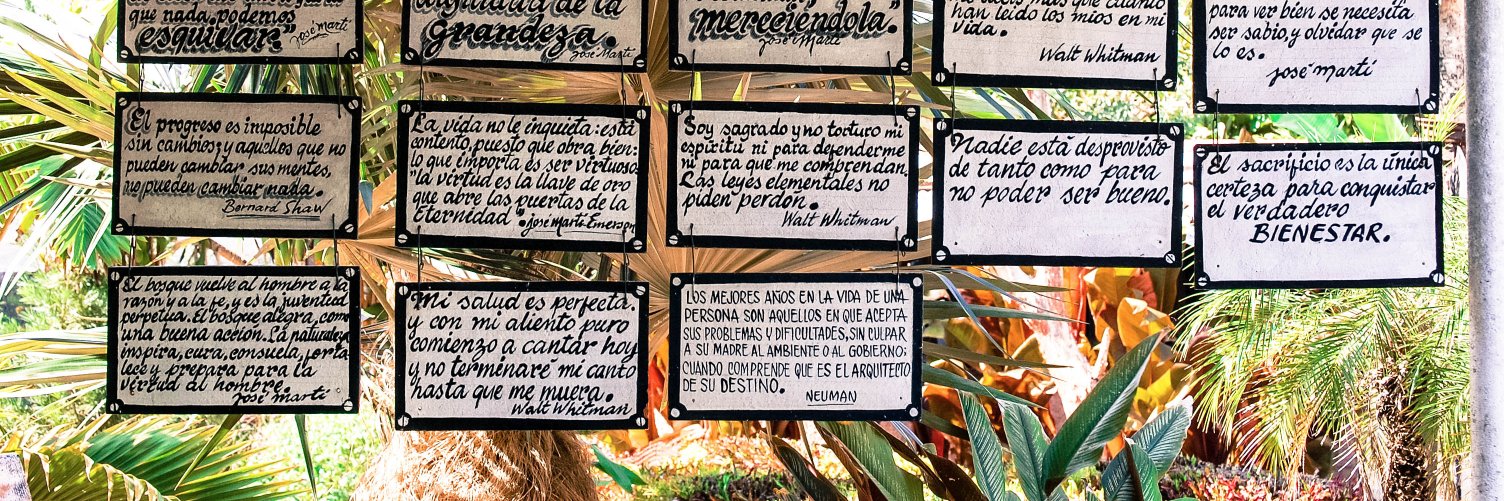 que nada, podemos
"esquivar."
José Martí
dignidad de la
Grandeza.
José Martí
Mereciéndola."
José Martí
han leído los míos en mi
vida.
Walt Whitman
para ver bien se necesita
ser sabio, y olvidar que se
lo es.
José Martí
El progreso es imposible
sin cambios; y aquellos que no
pueden cambiar, sus mentes,
no pueden cambiar nada.
Bernard Shaw
La vida no le inquieta: está
contento, puesto que obra bien:
lo que importa es ser virtuoso:
"la virtud es la llave de oro
que abre las puertas de la
Eternidad". José Martí-Emerson
Soy sagrado y no torturo mi
espíritu ni para defenderme
ni para que me comprendan.
Las leyes elementales no
piden perdón.
Walt Whitman
Nadie está desprovisto
de tanto como para
no poder ser bueno.
El sacrificio es la única
certeza para conquistar
el verdadero
BIENESTAR.
El bosque vuelve al hombre a la
razón y a la fe, y es la juventud
perpetua. El bosque alegra, como
una buena acción. La naturaleza
inspira, cura, consuela, forta
lece y prepara para la
virtud al hombre.
José Martí
Mi salud es perfecta.
y con mi aliento puro
comienzo a cantar hoy
y no terminaré mi canto
hasta que me muera.
Walt Whitman
LOS MEJORES AÑOS EN LA VIDA DE UNA
PERSONA SON AQUELLOS EN QUE ACEPTA
SUS PROBLEMAS Y DIFICULTADES, SIN CULPAR
A SU MADRE AL AMBIENTE O AL GOBIERNO;
CUANDO COMPRENDE QUE ES EL ARQUITECTO
DE SU DESTINO.
NEUMAN